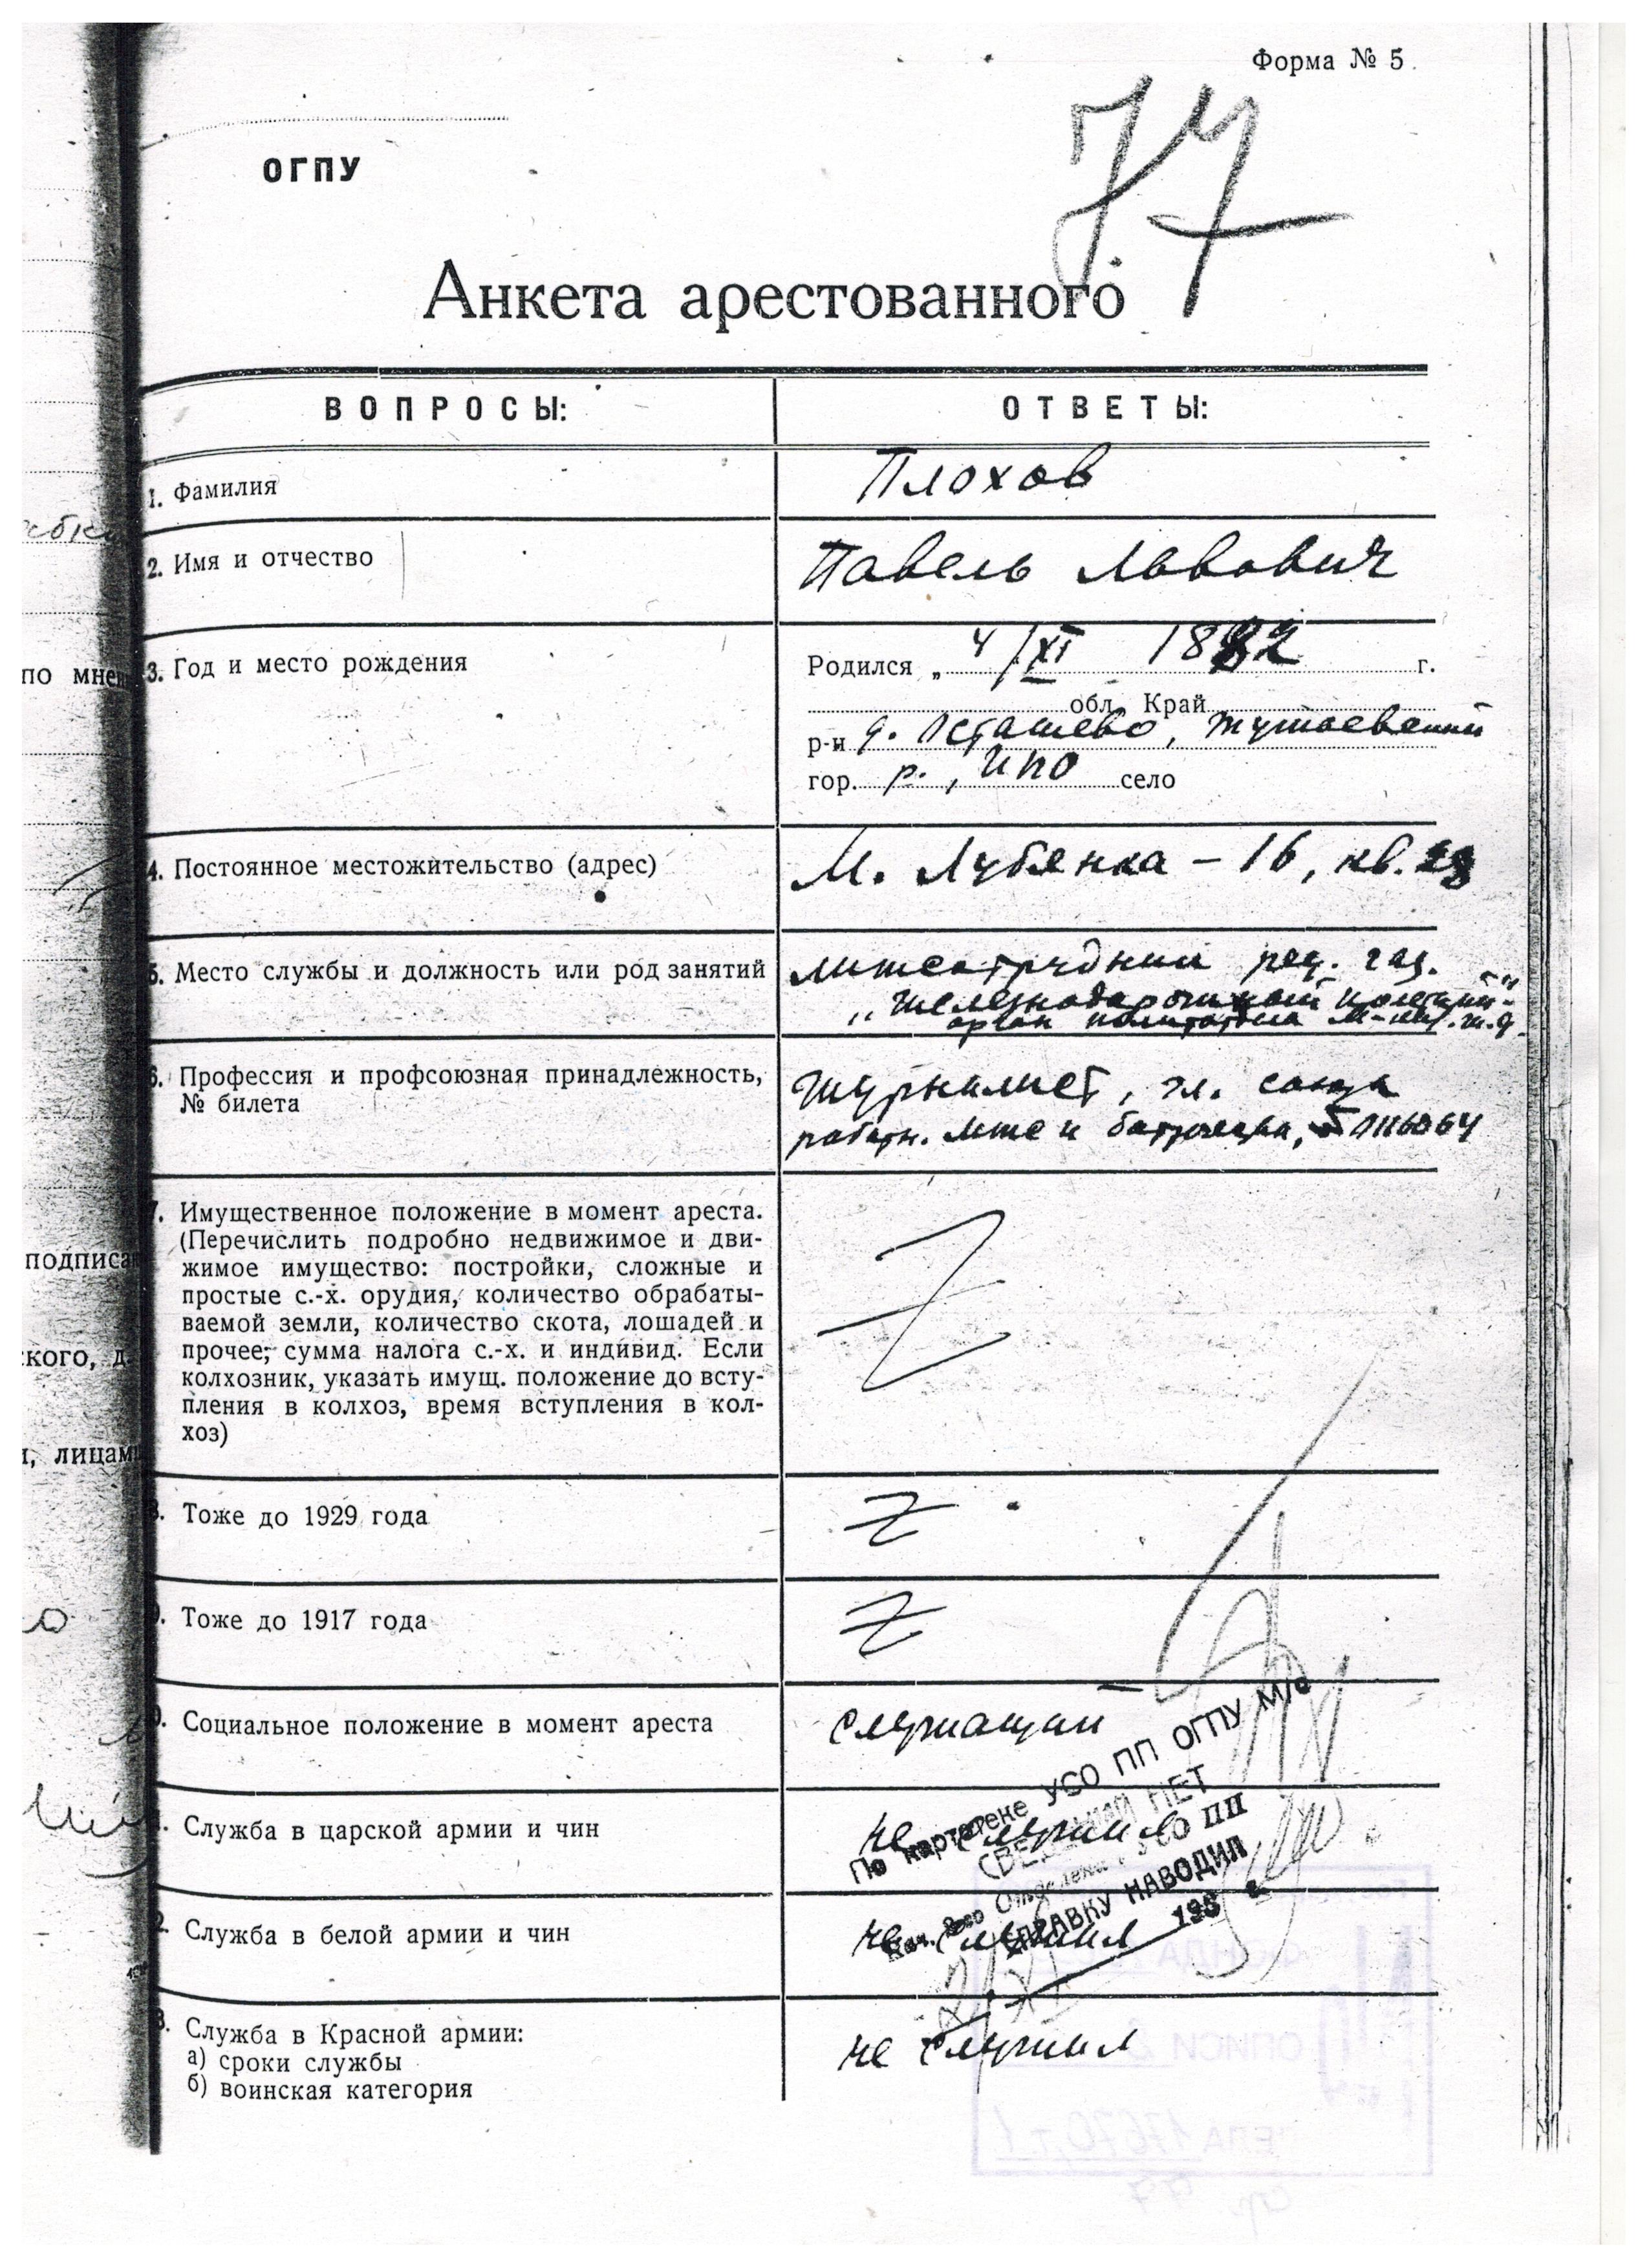 Форма № 5
77
ОГПУ
Анкета арестованного
ВОПРОСЫ:
ОТВЕТЫ:
1. Фамилия
Плохов
2. Имя и отчество
Павель Львович
3. Год и место рождения
Родился „ 4/XI 1882 г.
обл. Край
р-н д. Осташево,
гор. р., ИПО село
4. Постоянное местожительство (адрес)
М. Лубянка – 16, кв. 23
5. Место службы и должность или род занятий
литсотрудник ред. газ.
6. Профессия и профсоюзная принадлежность,
№ билета
Журналист, чл. союза
работн.
7. Имущественное положение в момент ареста.
(Перечислить подробно недвижимое и дви-
жимое имущество: постройки, сложные и
простые с.-х. орудия, количество обрабаты-
ваемой земли, количество скота, лошадей и
прочее; сумма налога с.-х. и индивид. Если
колхозник, указать имущ. положение до всту-
пления в колхоз, время вступления в кол-
хоз)
8. Тоже до 1929 года
9. Тоже до 1917 года
Социальное положение в момент ареста
служащий
Служба в царской армии и чин
не служил
По картотеке УСО ПП ОГПУ М/о
СВЕДЕНИЙ НЕТ
УСО ПП
СПРАВКУ НАВОДИЛ
193
Служба в белой армии и чин
не служил
Служба в Красной армии:
а) сроки службы
б) воинская категория
не служил
по мнен
подписа
кого, д.
лицам